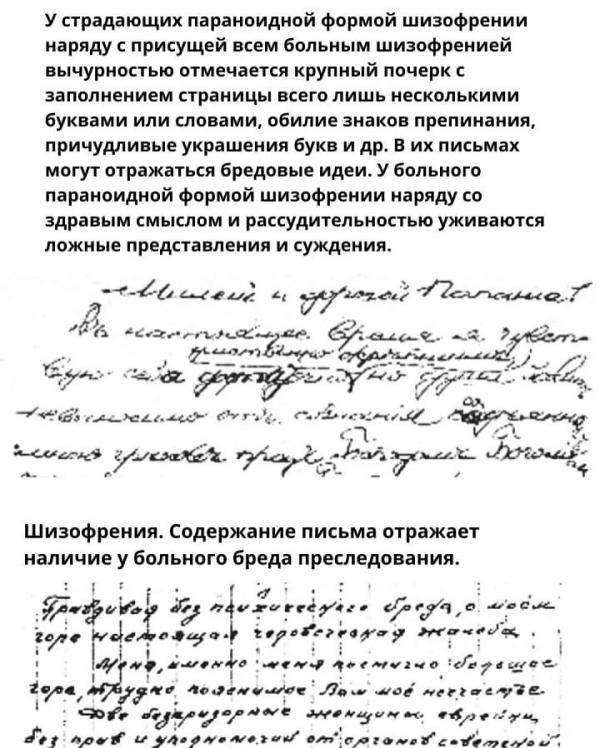 У страдающих параноидной формой шизофрении
наряду с присущей всем больным шизофренией
вычурностью отмечается крупный почерк с
заполнением страницы всего лишь несколькими
буквами или словами, обилие знаков препинания,
причудливые украшения букв и др. В их письмах
могут отражаться бредовые идеи. У больного
параноидной формой шизофрении наряду со
здравым смыслом и рассудительностью уживаются
ложные представления и суждения.
Милый и дорогой Папаша!
Въ настоящее время я чувст
вую себя
невыносимо отъ сознанія
мною грехов
Шизофрения. Содержание письма отражает
наличие у больного бреда преследования.
Правдивая без психического бреда, о моём
горе настоящая человеческая жалоба.
Меня, именно меня постигло большое
горе, трудно пояснимое Вам моё несчастье
Две безпризорные женщины еврейки,
без прав и уполномочий от органов советской